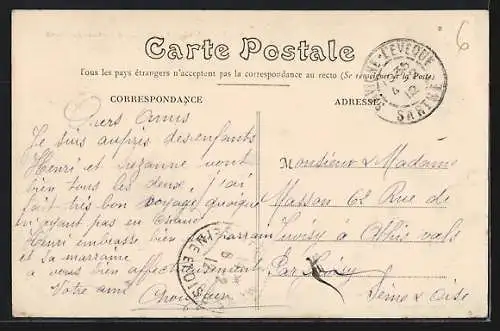 6
Carte Postale
Tous les pays étrangers n'acceptent pas la correspondance au recto (Se renseigner à la Poste)
CORRESPONDANCE
ADRESSE
L'EVEQUE
SARTHE
Chers Amis
Je suis auprès des enfants
Henri et Suzanne vont
bien tous les deux, j'ai
fait très bon voyage quoique
n'ayant pas eu
Henri embrasse bien son parrain
et sa marraine
a vous bien affectueusement
Votre ami
Monsieur & Madame
Masson 62 Rue de
Juvisy à Athis vals
Par Juvisy
Seine & Oise